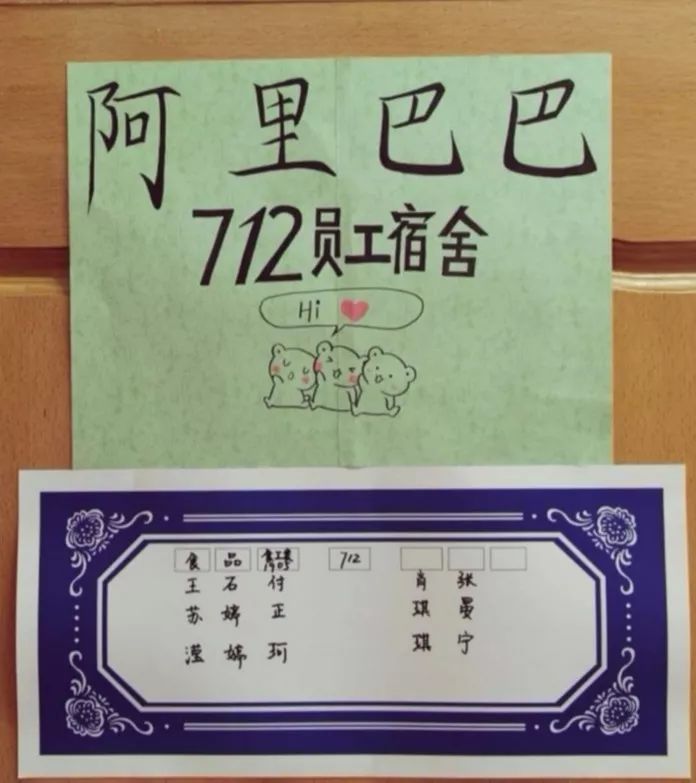 阿里巴巴
712员工宿舍
Hi
食 品 712
王苏滢
石婷婷
付正珂
肖琪琪
张曼宁